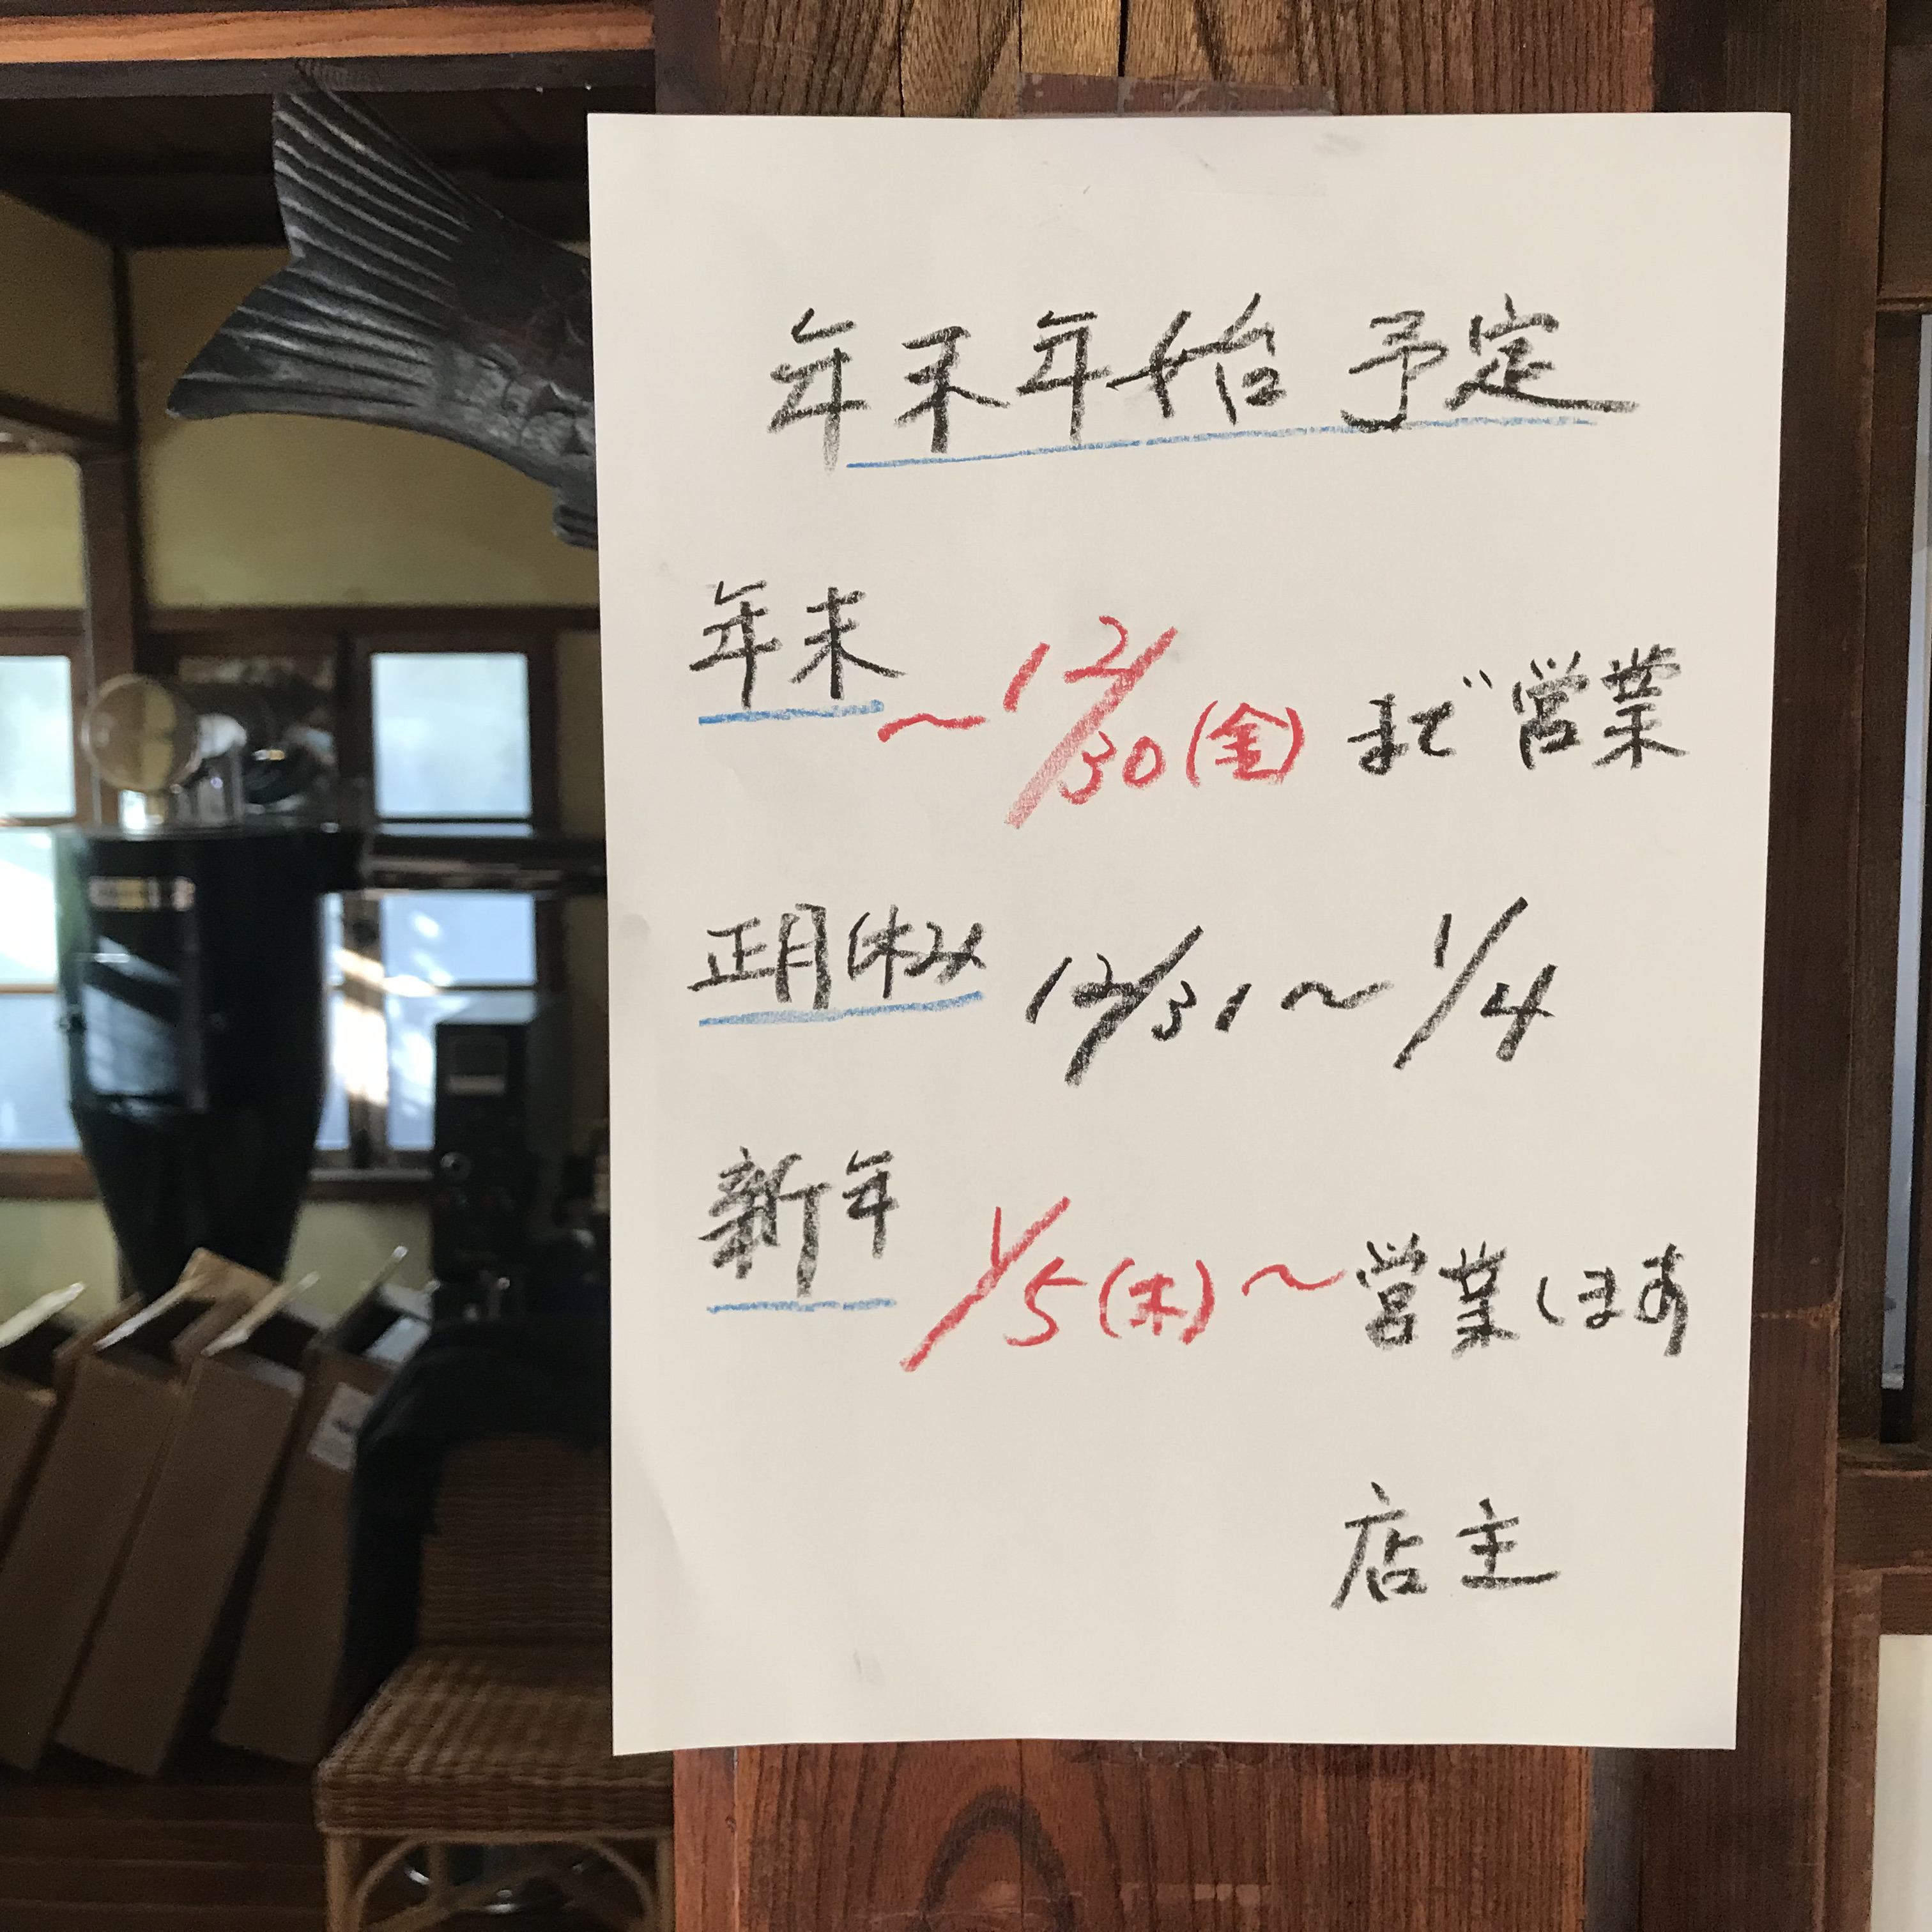 年末年始 予定
年末 ～12/30(金) まで営業
正月休み 12/31～1/4
新年 1/5(木)～営業します
店主